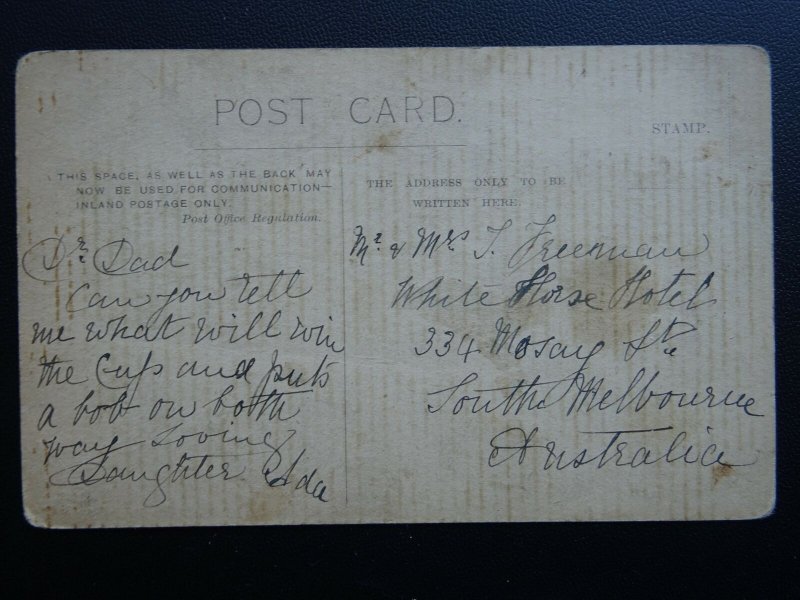 POST CARD.
STAMP.
THIS SPACE, AS WELL AS THE BACK MAY
NOW BE USED FOR COMMUNICATION—
INLAND POSTAGE ONLY.
Post Office Regulation.
THE ADDRESS ONLY TO BE
WRITTEN HERE.
Dr. Dad
Can you tell
me what will win
the Cup and puts
a bob on both
way Loving
Daughter Ada
Mr. & Mrs J. Freeman
White Horse Hotel
334 Moray St.
South Melbourne
Australia